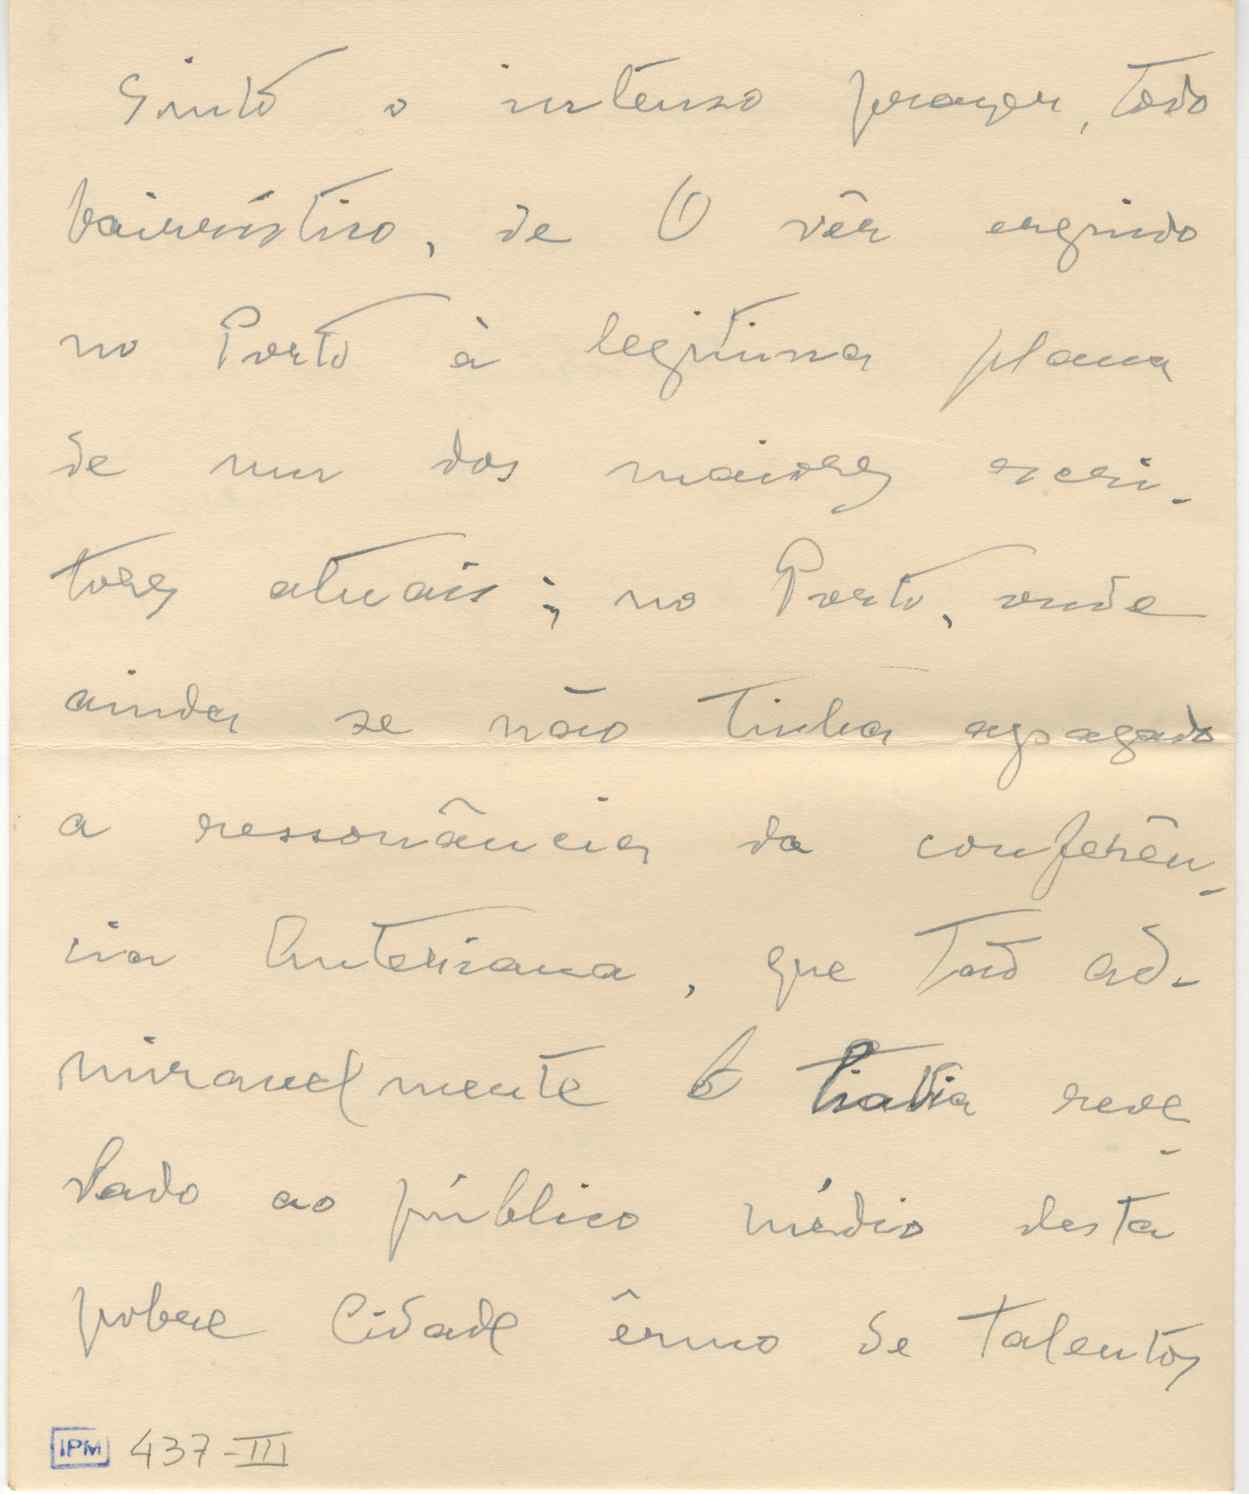 Sinto o intenso prazer, todo
bairrístico, de O vêr erguido
no Porto à legitima plana
de um dos maiores escri-
tores atuais; no Porto, onde
ainda se não tinha apagado
a ressonância da conferên-
cia Anteriana, que tão ad-
miravelmente O havia reve-
lado ao público médio desta
pobre Cidade êrmo de talentos
IPM 437-III